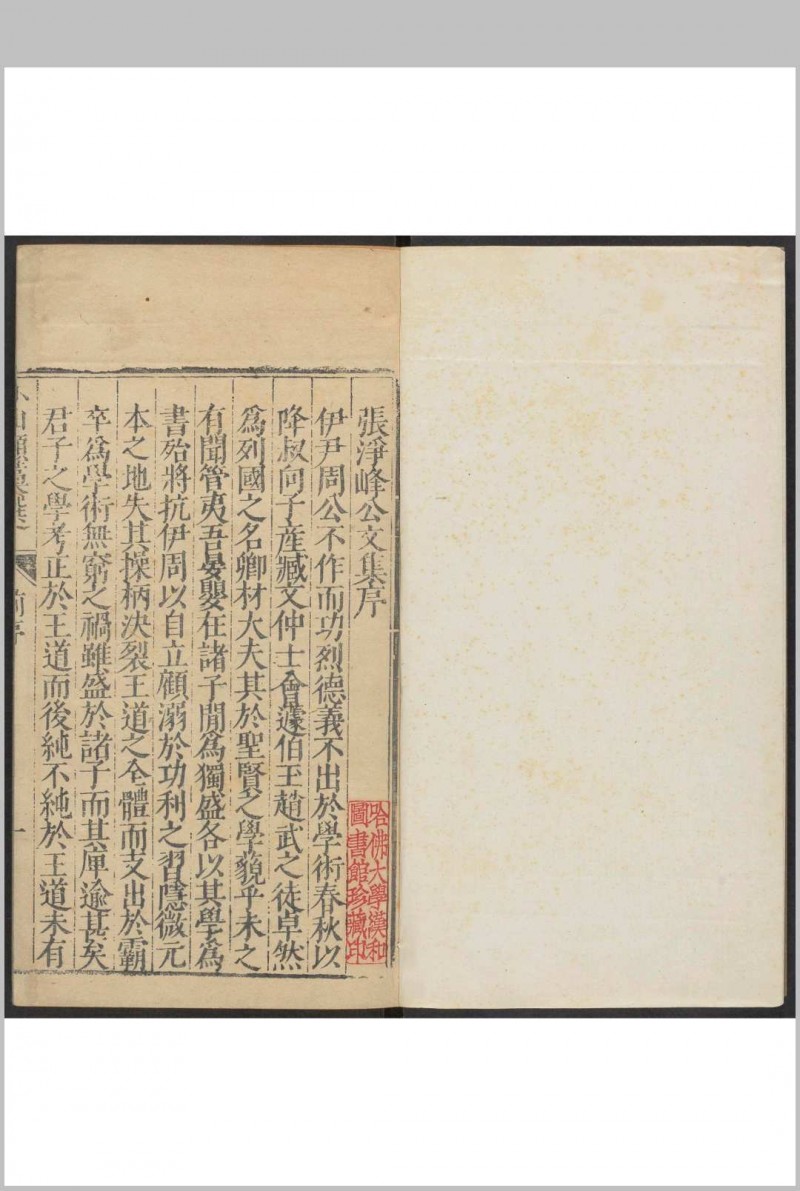 張淨峰公文集序
伊尹周公不作而功烈德義不出於學術春秋以
降叔向子產臧文仲士會蘧伯玉趙武之徒卓然
爲列國之名卿材大夫其於聖賢之學藐乎未之
有聞管夷吾晏嬰在諸子閒爲獨盛各以其學爲
書殆將抗伊周以自立顧溺於功利之習隱微元
本之地失其操柄決裂王道之全體而支出於霸
卒爲學術無窮之禍雖盛於諸子而其厚逾甚矣
君子之學考正於王道而後純不純於王道未有
小山類藁選
前序
一
哈佛大學漢和
圖書館珍藏印